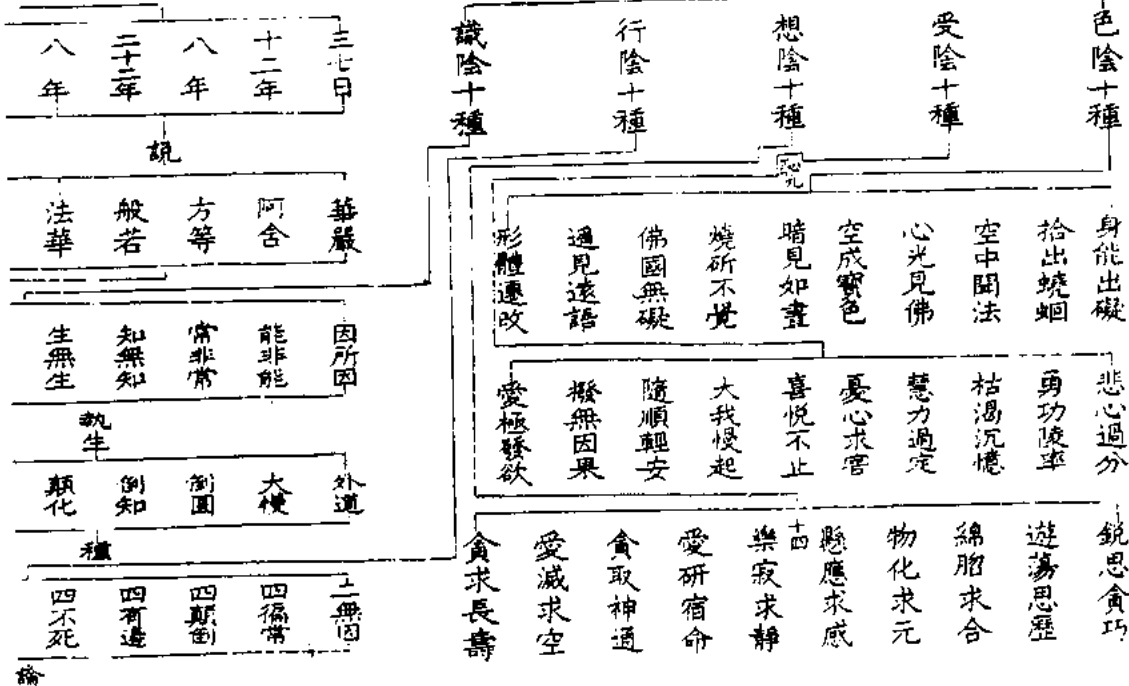 色陰十種
受陰十種
想陰十種
行陰十種
識陰十種
身能出礙
拾出蟯蛔
空中聞法
心光見佛
空成寶色
暗見如晝
燒斫不覺
佛國無礙
遥見遠語
形體遷改
悲心過分
勇功陵率
枯渴沉憶
慧力過定
憂心求害
喜悦不止
大我慢起
隨順輕安
撥無因果
愛極發欲
銳思貪巧
遊蕩思歷
綿䐇求合
物化求元
懸應求感
十四
樂寂求靜
愛研宿命
貪取神通
愛滅求空
貪求長壽
三七日
十二年
八年
二十二年
八年
說
華嚴
阿含
方等
般若
法華
因所因
能非能
常非常
知無知
生無生
執
外道
大慢
倒圓
倒知
顛化
種
二無因
四徧常
四顛倒
四有邊
四不死
論